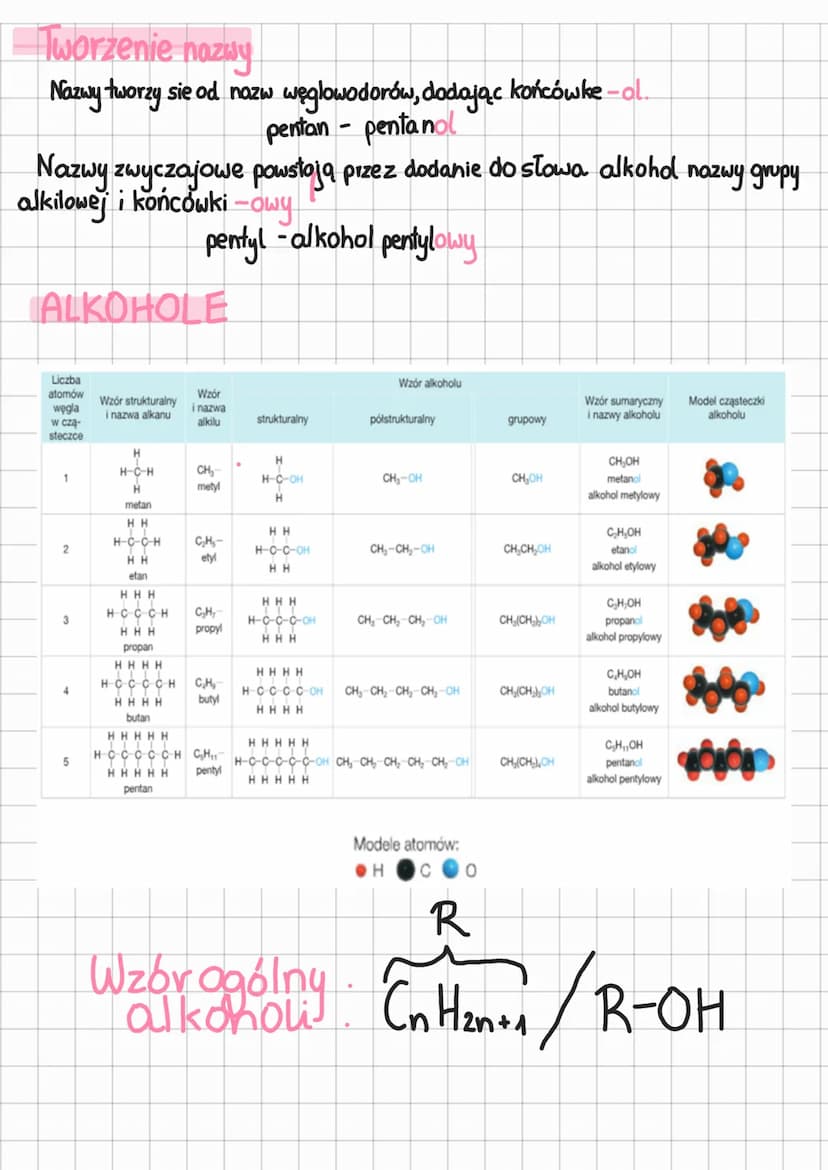 Tworzenie nazwy
Nazwy tworzy sie od nazw węglowodorów, dodając końcówke -ol.
pentan - pentanol
Nazwy zwyczajowe powstają przez dodanie do słowa alkohol nazwy grupy
alkilowej i końcówki -owy
pentyl - alkohol pentylowy
ALKOHOLE
Liczba atomów węgla w czą-steczce
Wzór strukturalny i nazwa alkanu
Wzór i nazwa alkilu
Wzór alkoholu
strukturalny
półstrukturalny
grupowy
Wzór sumaryczny i nazwy alkoholu
Model cząsteczki alkoholu
1
H
H-C-H
H
metan
CH₃-
metyl
H
H-C-OH
H
CH₃-OH
CH₃OH
CH₃OH
metanol
alkohol metylowy
2
H H
H-C-C-H
H H
etan
C₂H₅-
etyl
H H
H-C-C-OH
H H
CH₃-CH₂-OH
CH₃CH₂OH
C₂H₅OH
etanol
alkohol etylowy
3
H H H
H-C-C-C-H
H H H
propan
C₃H₇-
propyl
H H H
H-C-C-C-OH
H H H
CH₃-CH₂-CH₂-OH
CH₃(CH₂)₂OH
C₃H₇OH
propanol
alkohol propylowy
4
H H H H
H-C-C-C-C-H
H H H H
butan
C₄H₉-
butyl
H H H H
H-C-C-C-C-OH
H H H H
CH₃-CH₂-CH₂-CH₂-OH
CH₃(CH₂)₃OH
C₄H₉OH
butanol
alkohol butylowy
5
H H H H H
H-C-C-C-C-C-H
H H H H H
pentan
C₅H₁₁-
pentyl
H H H H H
H-C-C-C-C-C-OH
H H H H H
CH₃-CH₂-CH₂-CH₂-CH₂-OH
CH₃(CH₂)₄OH
C₅H₁₁OH
pentanol
alkohol pentylowy
Modele atomów:
H C O
R
Wzór ogólny alkoholi : CnH2n+1 / R-OH